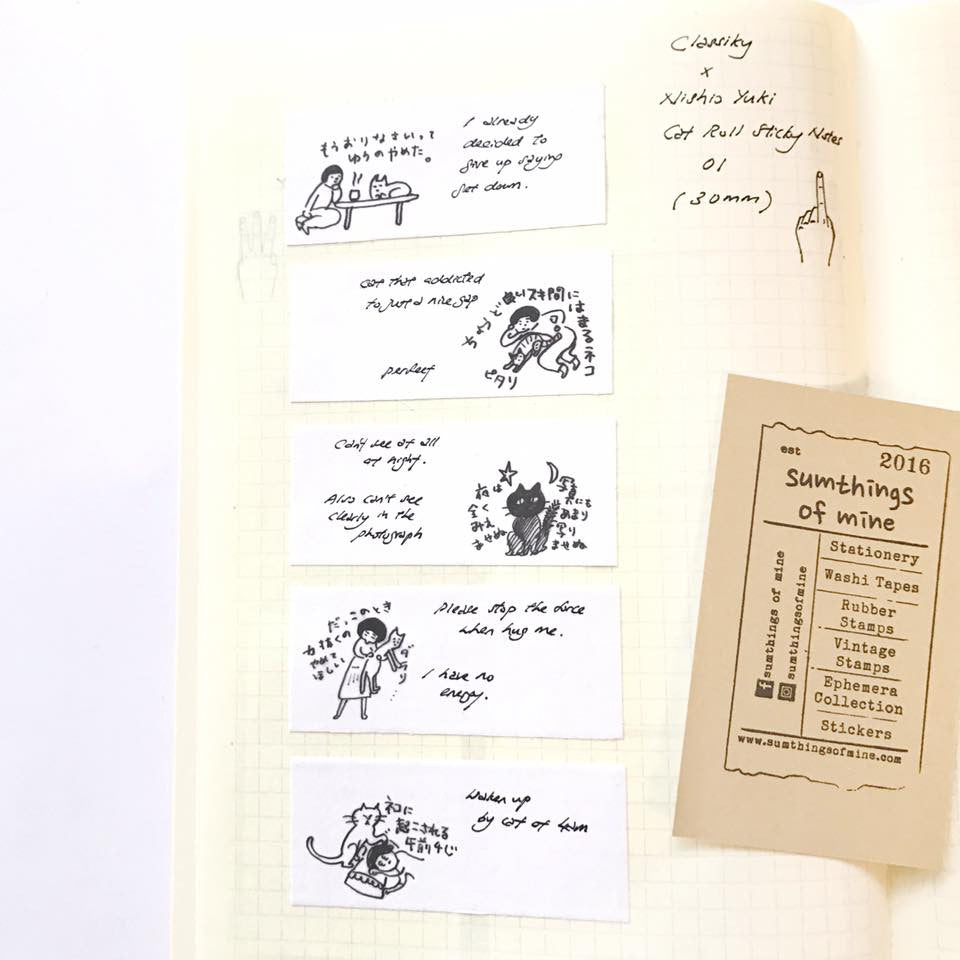 Classiky
x
Nishio Yuki
Cat Roll Sticky Notes
01
(30mm)
もうおりなさいって
ゆうのやめた。
I already
decided to
give up saying
get down.
cat that addicted
to just a nice gap
perfect
ちょうど良いスキ間にはまるネコ
ピタリ
Can't see at all
at night.
Also can't see
clearly in the
photograph
夜は
全く
みえ
ませぬ
写真
にも
あまり
写り
ませぬ
だっこのとき
力抜くの
やめて
ほしい
ダラリ
Please stop the force
when hug me.
I have no
energy.
ネコに
起こされる
午前4じ
Waken up
by cat at 4am
est 2016
sumthings
of mine
Stationery
Washi Tapes
Rubber
Stamps
Vintage
Stamps
Ephemera
Collection
Stickers
sumthings of mine
sumthingsofmine
www.sumthingsofmine.com